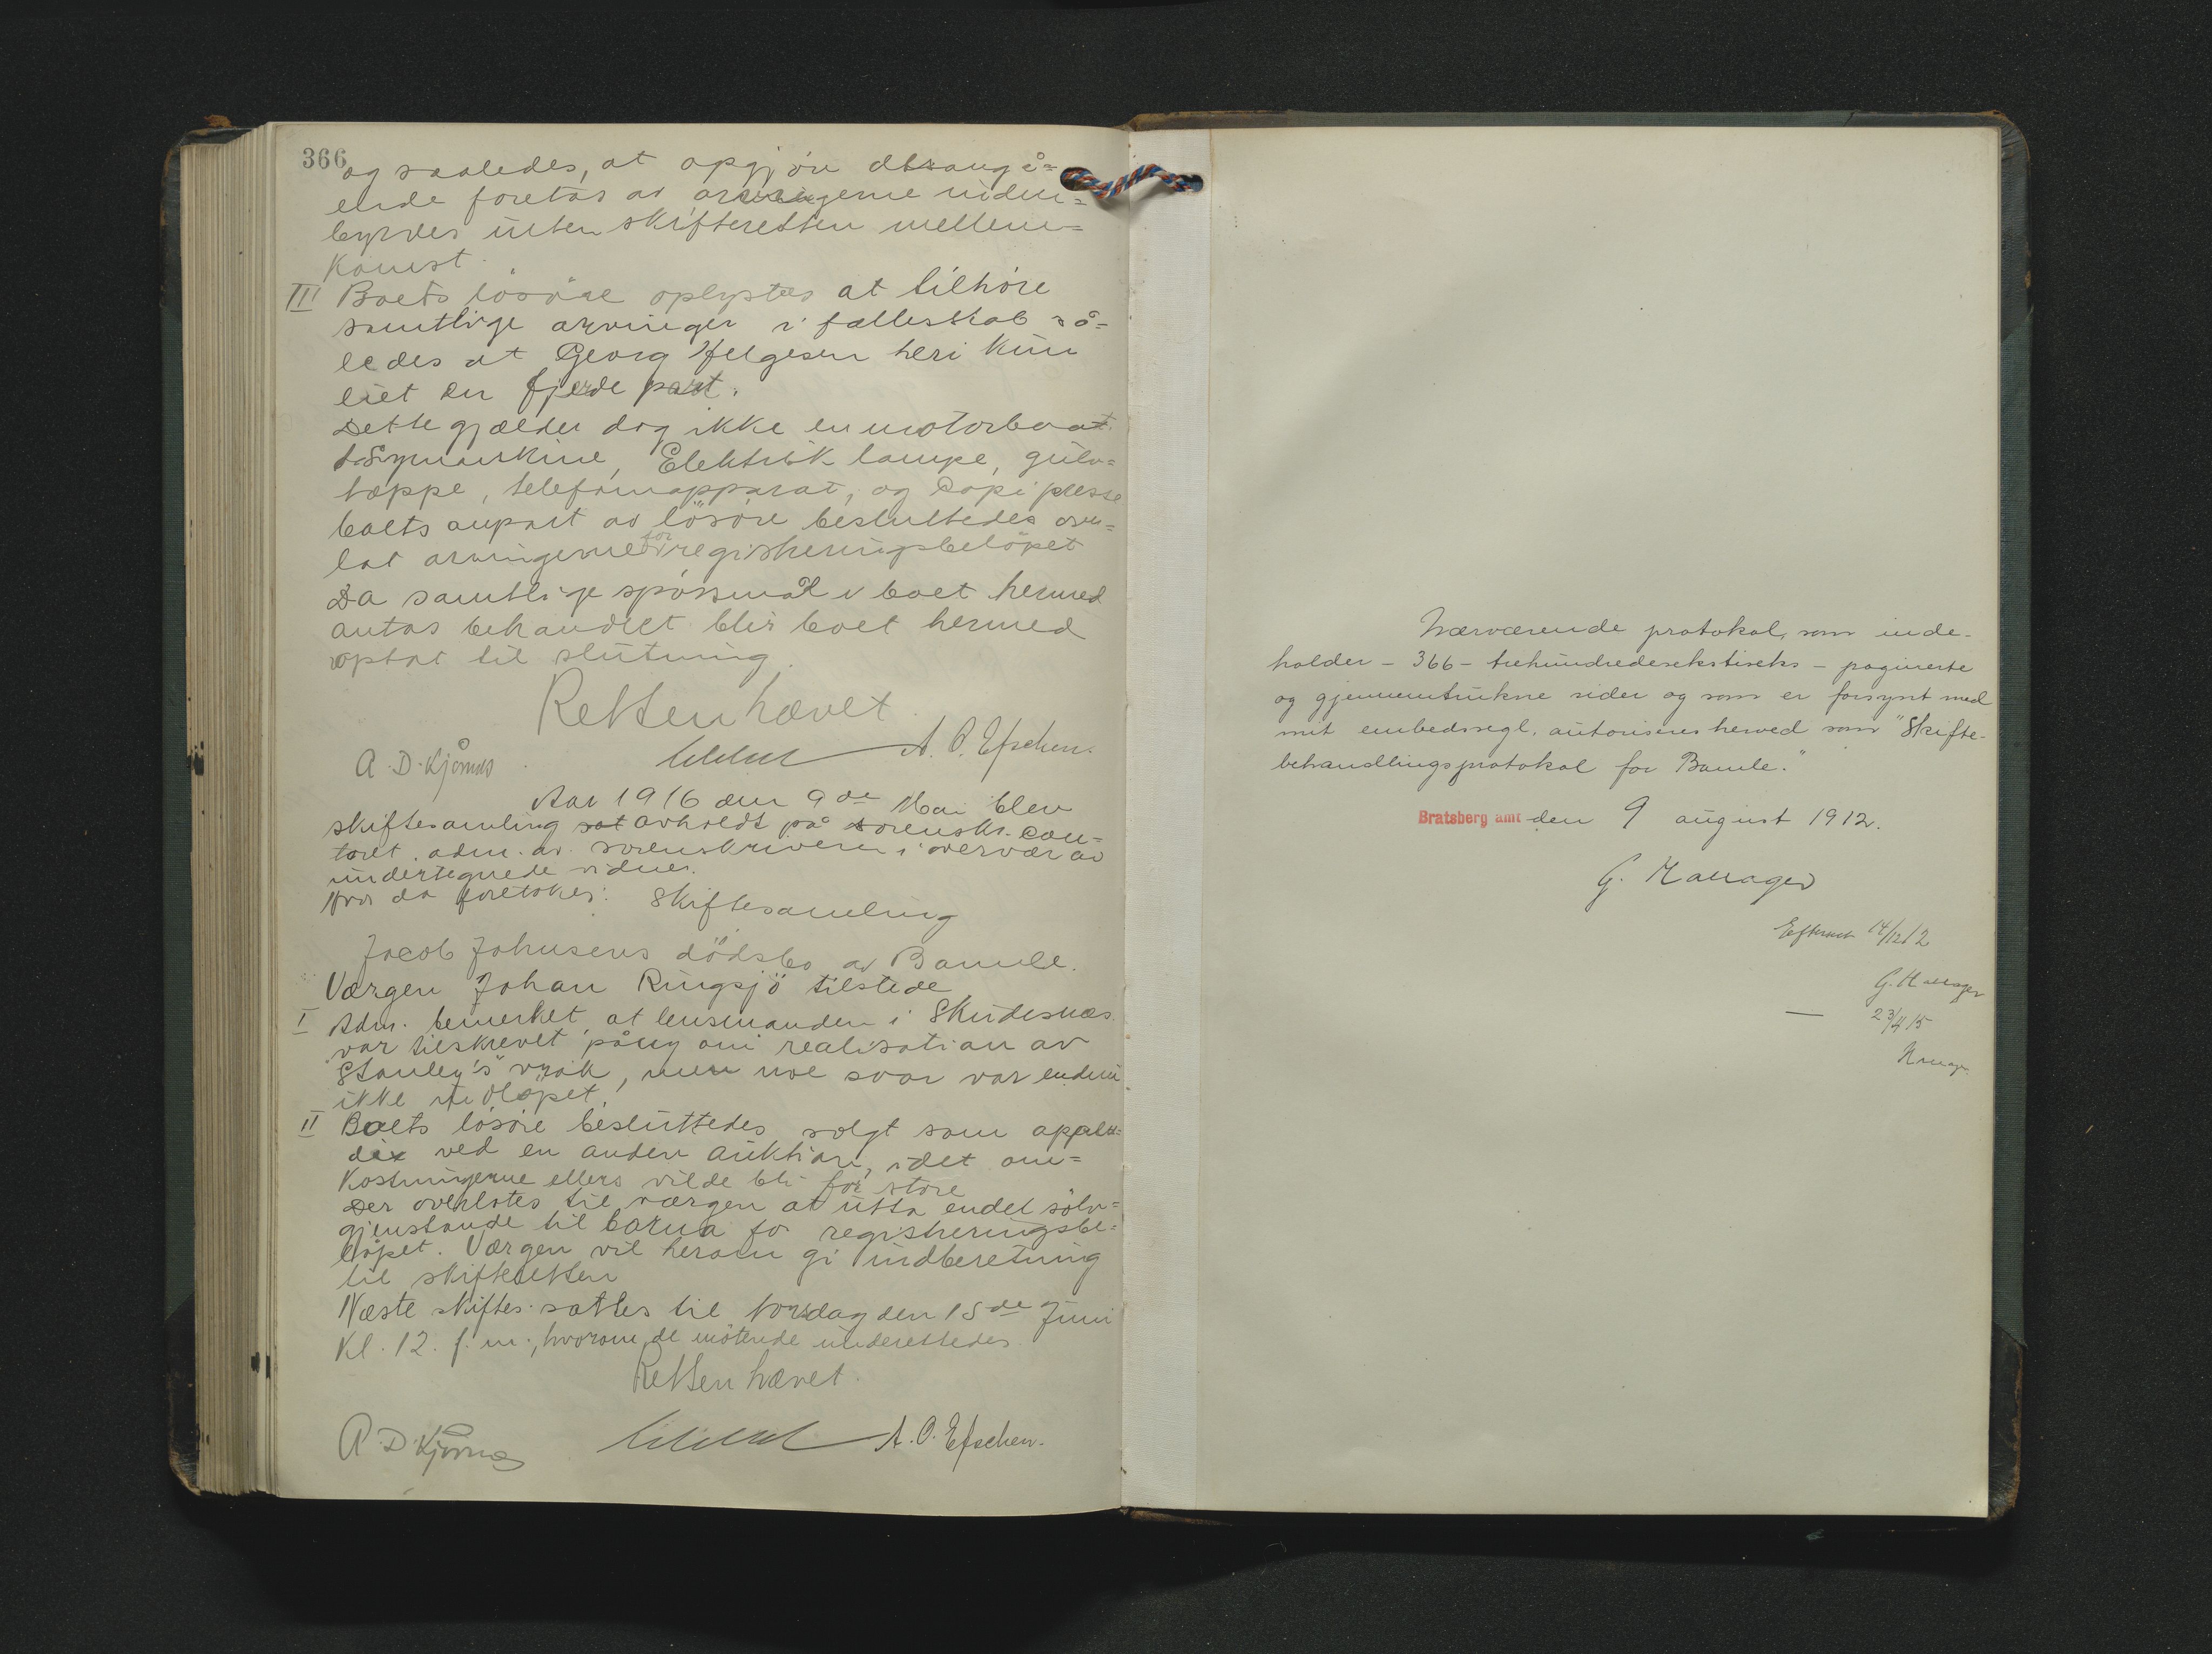 366
og saaledes, at opgjör
ende foretas av arvingerne inden=
byrdes uten skifteretten mellem=
komst.
III Boets lösöre oplystes at tilhöre
samtlige arvinger i fællesskab så=
ledes at Georg Helgesen heri kun
eiet en fjerde part.
Dette gjælder dog ikke en motorbaat
1 Symaskine, Elektrisk lampe, gulv=
tæppe, telefonapparat, og Copi presse
boets anpart av lösöre besluttedes over=
lat arvingerne for registreringsbelöpet
Da samtlige spörsmål i boet hermed
antas behandlet blir boet hermed
optat til slutning.
Retten hævet.
A. D. Kjönnås A. O. Efschen.
Aar 1916 den 9de Mai blev
skiftesamling sat avholdt på sorenskr. Con=
toret, adm. av sorenskriveren i overvær av
undertegnede vidner.
Hvor da foretokes: Skiftesamling
Jacob Johnsens dödsbo av Bamle.
Værgen Johan Ringsjö tilstede
I Adm. bemerket, at lensmanden i Skudesnæs
var tilskrevet påny om realisation av
"Stanley's" vrak, men noe svar var endnu
ikke indlöpet.
II Boets lösöre besluttedes solgt som appen=
dix ved en anden auktion, idet om=
kostningerne ellers vilde bli for store
Der overlotes til værgen at utta endel sölv=
gjenstande til barna for registreringsbe=
löpet. Værgen vil herom gi indberetning
til skifteretten
Næste skiftes. sattes til torsdag den 15de Juni
Kl. 12. f. m., hvorom de mötende underettedes.
Retten hævet.
A. D. Kjönnås A. O. Efschen.
Nærværende protokol, som inde-
holder - 366 - trehundredesekstiseks - paginerte
og gjennemtrukne sider og som er forsynt med
mit embedssegl, autoriseres herved som "Skifte-
behandlingsprotokol for Bamle."
Bratsberg amt den 9 august 1912.
G. Hauager
Efterset 14/12 12
G. Hauager
— 23/4 15
Hauager